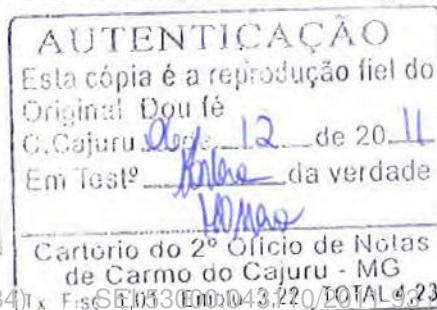 AUTENTICAÇÃO
Esta cópia é a reprodução fiel do
Original Dou fé
C.Cajuru 06 de 12 de 20 11
Em Testº da verdade
Cartório do 2º Ofício de Notas
de Carmo do Cajuru - MG
Tx Fisc 1,01 Emolu 3,22 TOTAL 4,23
SEI 53000.043110/2011-93